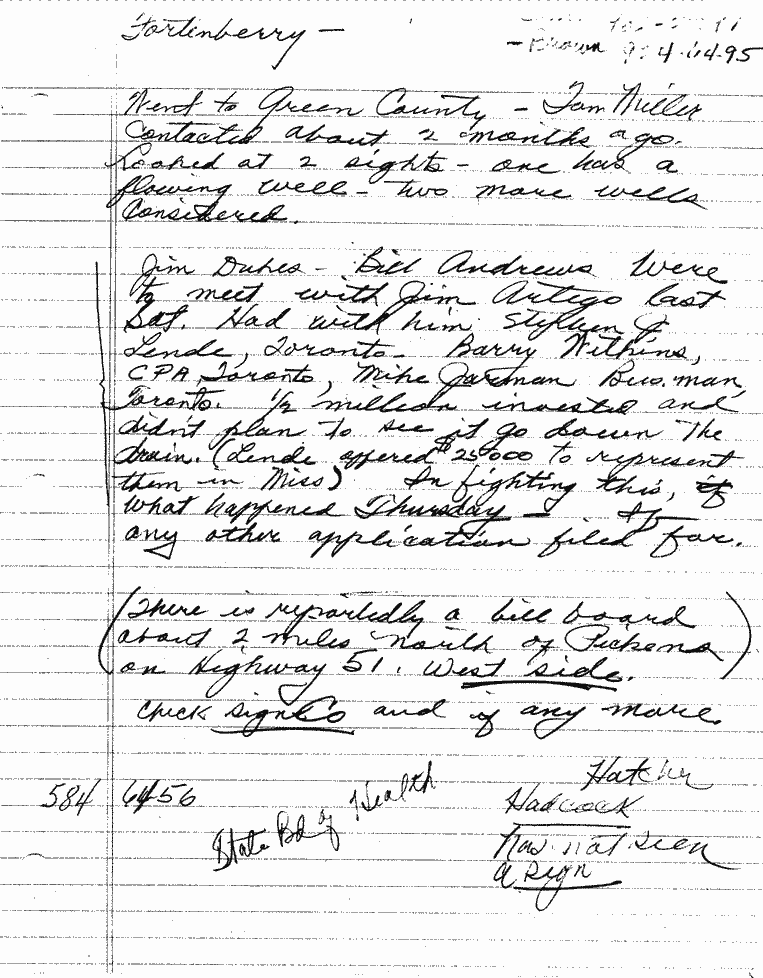 Fortenberry -
- Brown 924-64-95
Went to Green County - Tom Miller
contacted about 2 months ago.
Looked at 2 sights - one has a
flowing well - two more wells
considered.
Jim Dukes - Bill Andrews Were
to meet with Jim Artego last
Sat. Had with him Stephen J.
Lende, Toronto - Barry Wilkins,
CPA, Toronto, Mike Jarman Bus. man,
Toronto. 1/2 million invested and
didn't plan to see it go down The
drain. (Lende offered $25000 to represent
them in Miss) In fighting this, if
what happened Thursday - If
any other application filed for.
(There is reportedly a bill board
about 2 miles north of Pickens
on Highway 51. West side.)
check sign Co and if any more.
Hatcher
584 6456
State Bd of Health
Hadcock
Has not seen
a sign